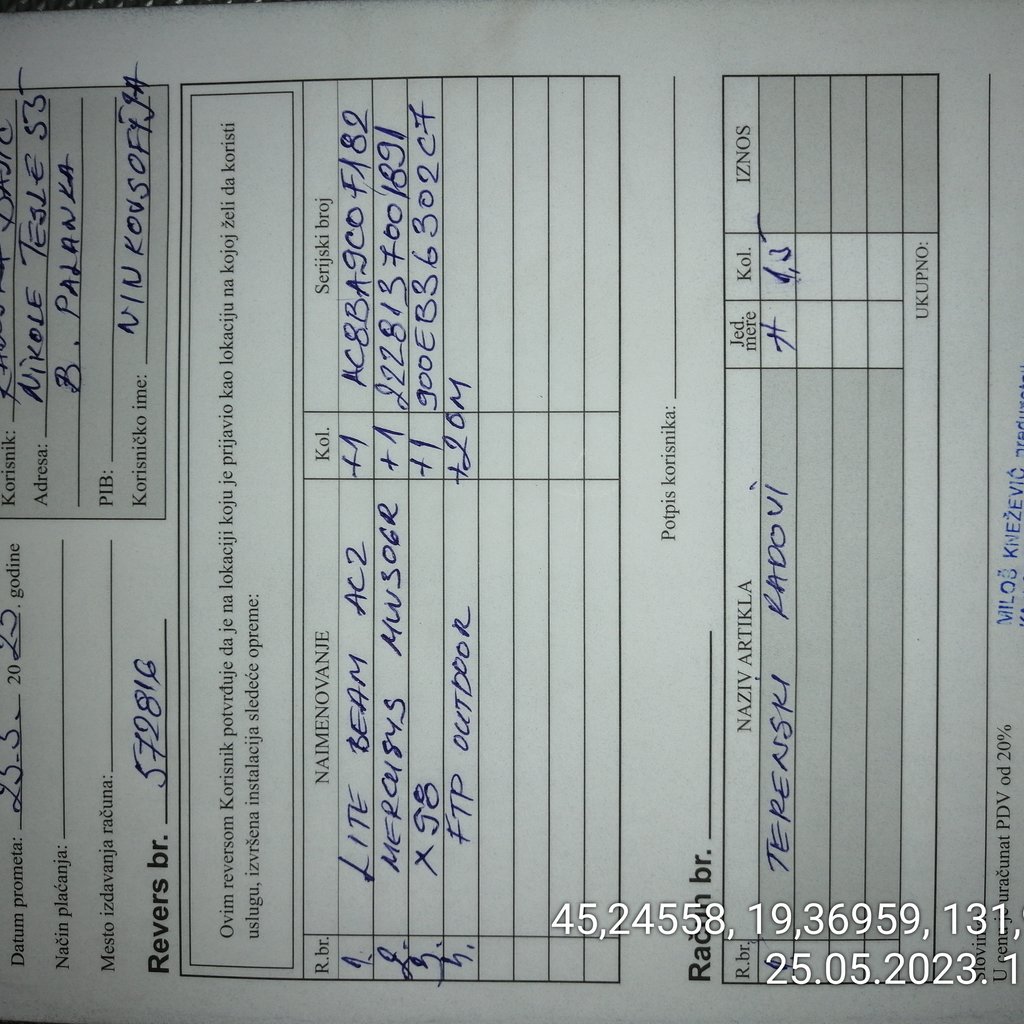 Datum prometa: 25.5. 2023. godine
Način plaćanja:
Mesto izdavanja računa:
Revers br. 572816
Korisnik:
Adresa: NIKOLE TESLE 55
B. PALANKA
PIB:
Korisničko ime: NINKOVSOFIJA
Ovim reversom Korisnik potvrđuje da je na lokaciji koju je prijavio kao lokaciju na kojoj želi da koristi
uslugu, izvršena instalacija sledeće opreme:
R.br. NAIMENOVANJE Kol. Serijski broj
1. LITE BEAM AC2 +1 AC8BA9C0F182
2. MERCUSYS MW306R +1 2228137001891
3. X98 +1 900EB36302C7
4. FTP OUTDOOR +20M
Potpis korisnika:
Račun br.
R.br. NAZIV ARTIKLA Jed. mere Kol. IZNOS
TERENSKI RADOVI H 1,5
UKUPNO:
U cenu je uračunat PDV od 20%
MILOŠ KNEŽEVIĆ
45,24558, 19,36959, 131,
25.05.2023. 1